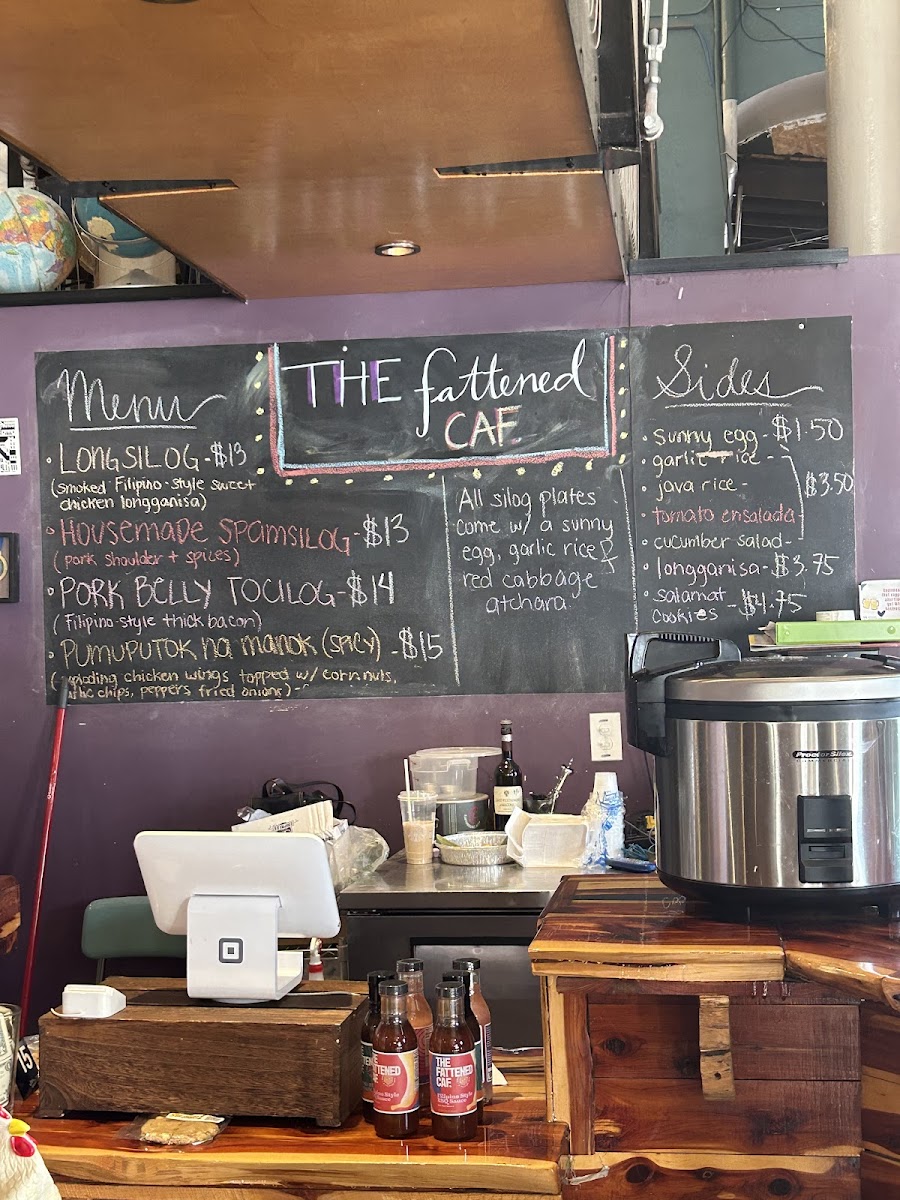 Menu
• LONGSILOG - $13
(smoked Filipino-style sweet
chicken longganisa)
• HOUSEMADE SPAMSILOG - $13
(pork shoulder + spices)
• PORK BELLY TOCILOG - $14
(Filipino-style thick bacon)
• PUMUPUTOK na manok (SPICY) - $15
chicken wings topped w/ corn nuts,
chips, peppers fried onions)
THE fattened
CAF.
All silog plates
come w/ a sunny
egg, garlic rice &
red cabbage
atchara.
Sides
• sunny egg - $1.50
• garlic rice -
• java rice - $3.50
• tomato ensalada
• cucumber salad -
• longganisa - $3.75
• salamat
cookies - $4.75
Proctor Silex
COMMERCIAL
THE
FATTENED
CAF.
Filipino Style
BBQ Sauce
THE
FATTENED
CAF.
Filipino Style
BBQ Sauce
15